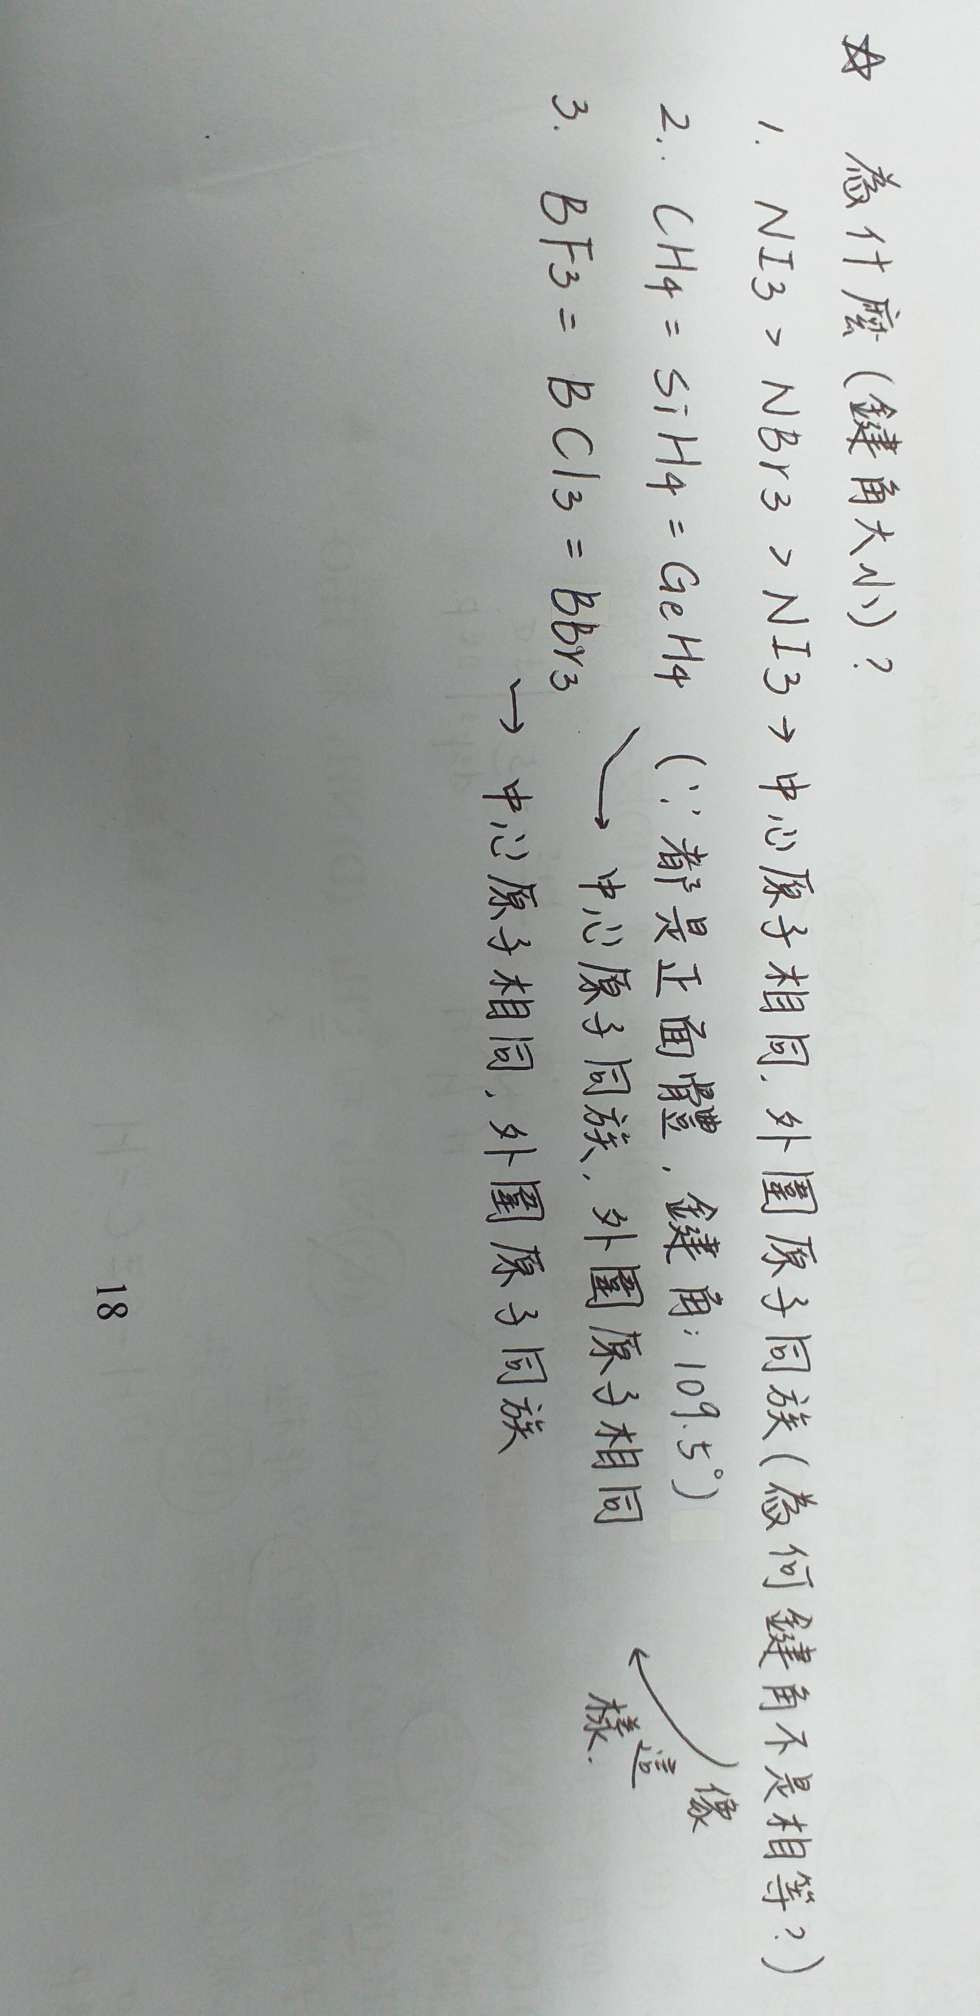 ☆ 為什麼(鍵角大小)?
1. NI3 > NBr3 > NI3 → 中心原子相同, 外圍原子同族(為何鍵角不是相等?)
2. CH4 = SiH4 = GeH4 (∵都是正面體, 鍵角: 109.5°)
像這樣.
→ 中心原子同族, 外圍原子相同
3. BF3 = BCl3 = BBr3
→ 中心原子相同, 外圍原子同族
18